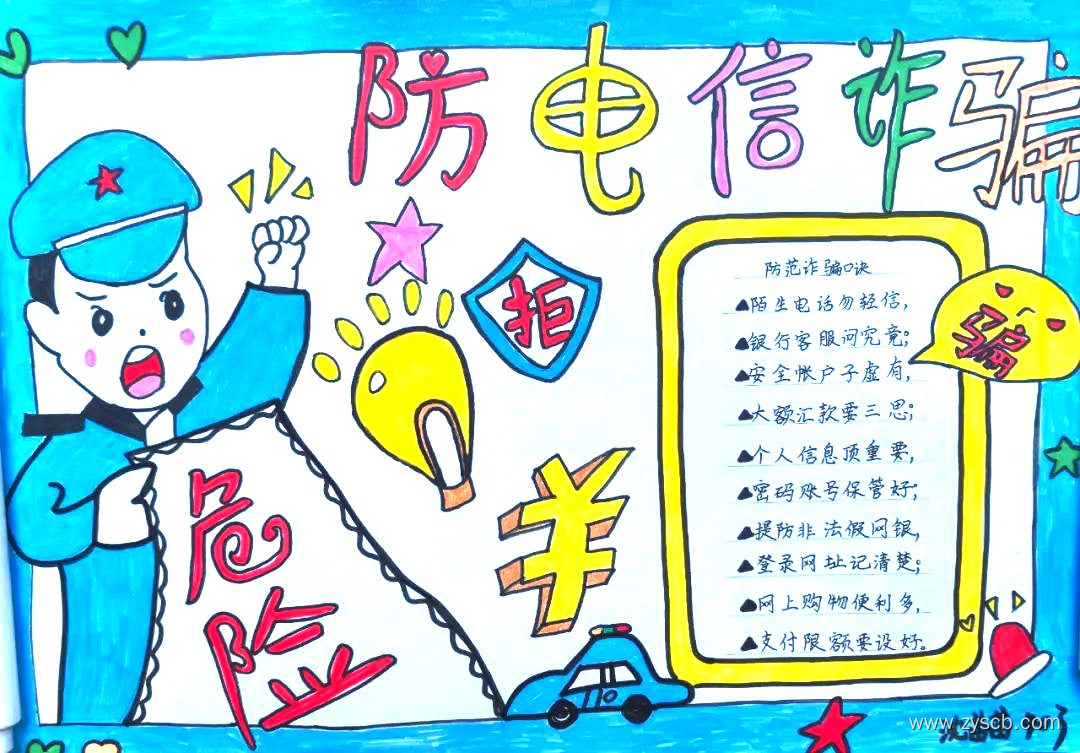 防电信诈骗
拒
骗
危险
防范诈骗口诀
▲陌生电话勿轻信,
▲银行客服问究竟;
▲安全帐户子虚有,
▲大额汇款要三思;
▲个人信息顶重要,
▲密码账号保管好;
▲提防非法假网银,
▲登录网址记清楚;
▲网上购物便利多,
▲支付限额要设好。
www.zyscb.com